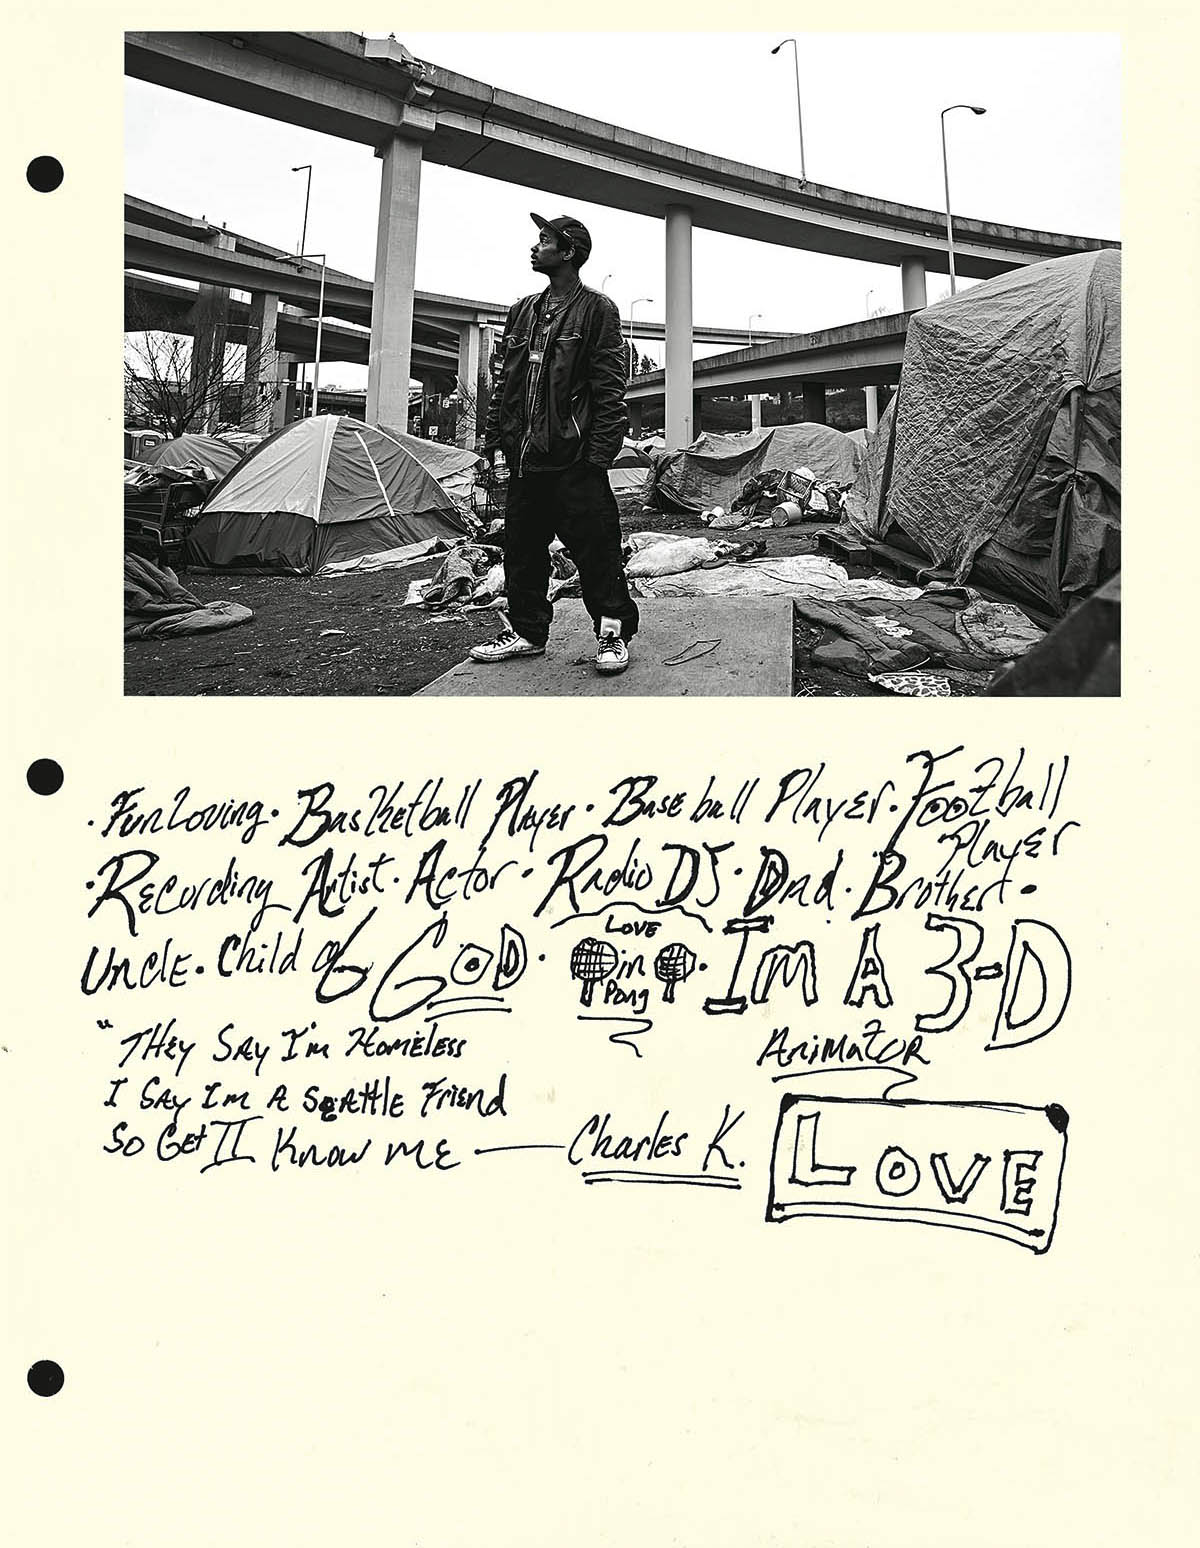 · Fun Loving · Basketball Player · Baseball Player · Football Player
· Recording Artist · Actor · Radio DJ · Dad · Brother ·
Uncle · Child of GOD · LOVE Pin Pong · Im A 3-D
Animator
"They Say I'm Homeless
I Say Im A Seattle Friend
So Get II Know me — Charles K.
LOVE